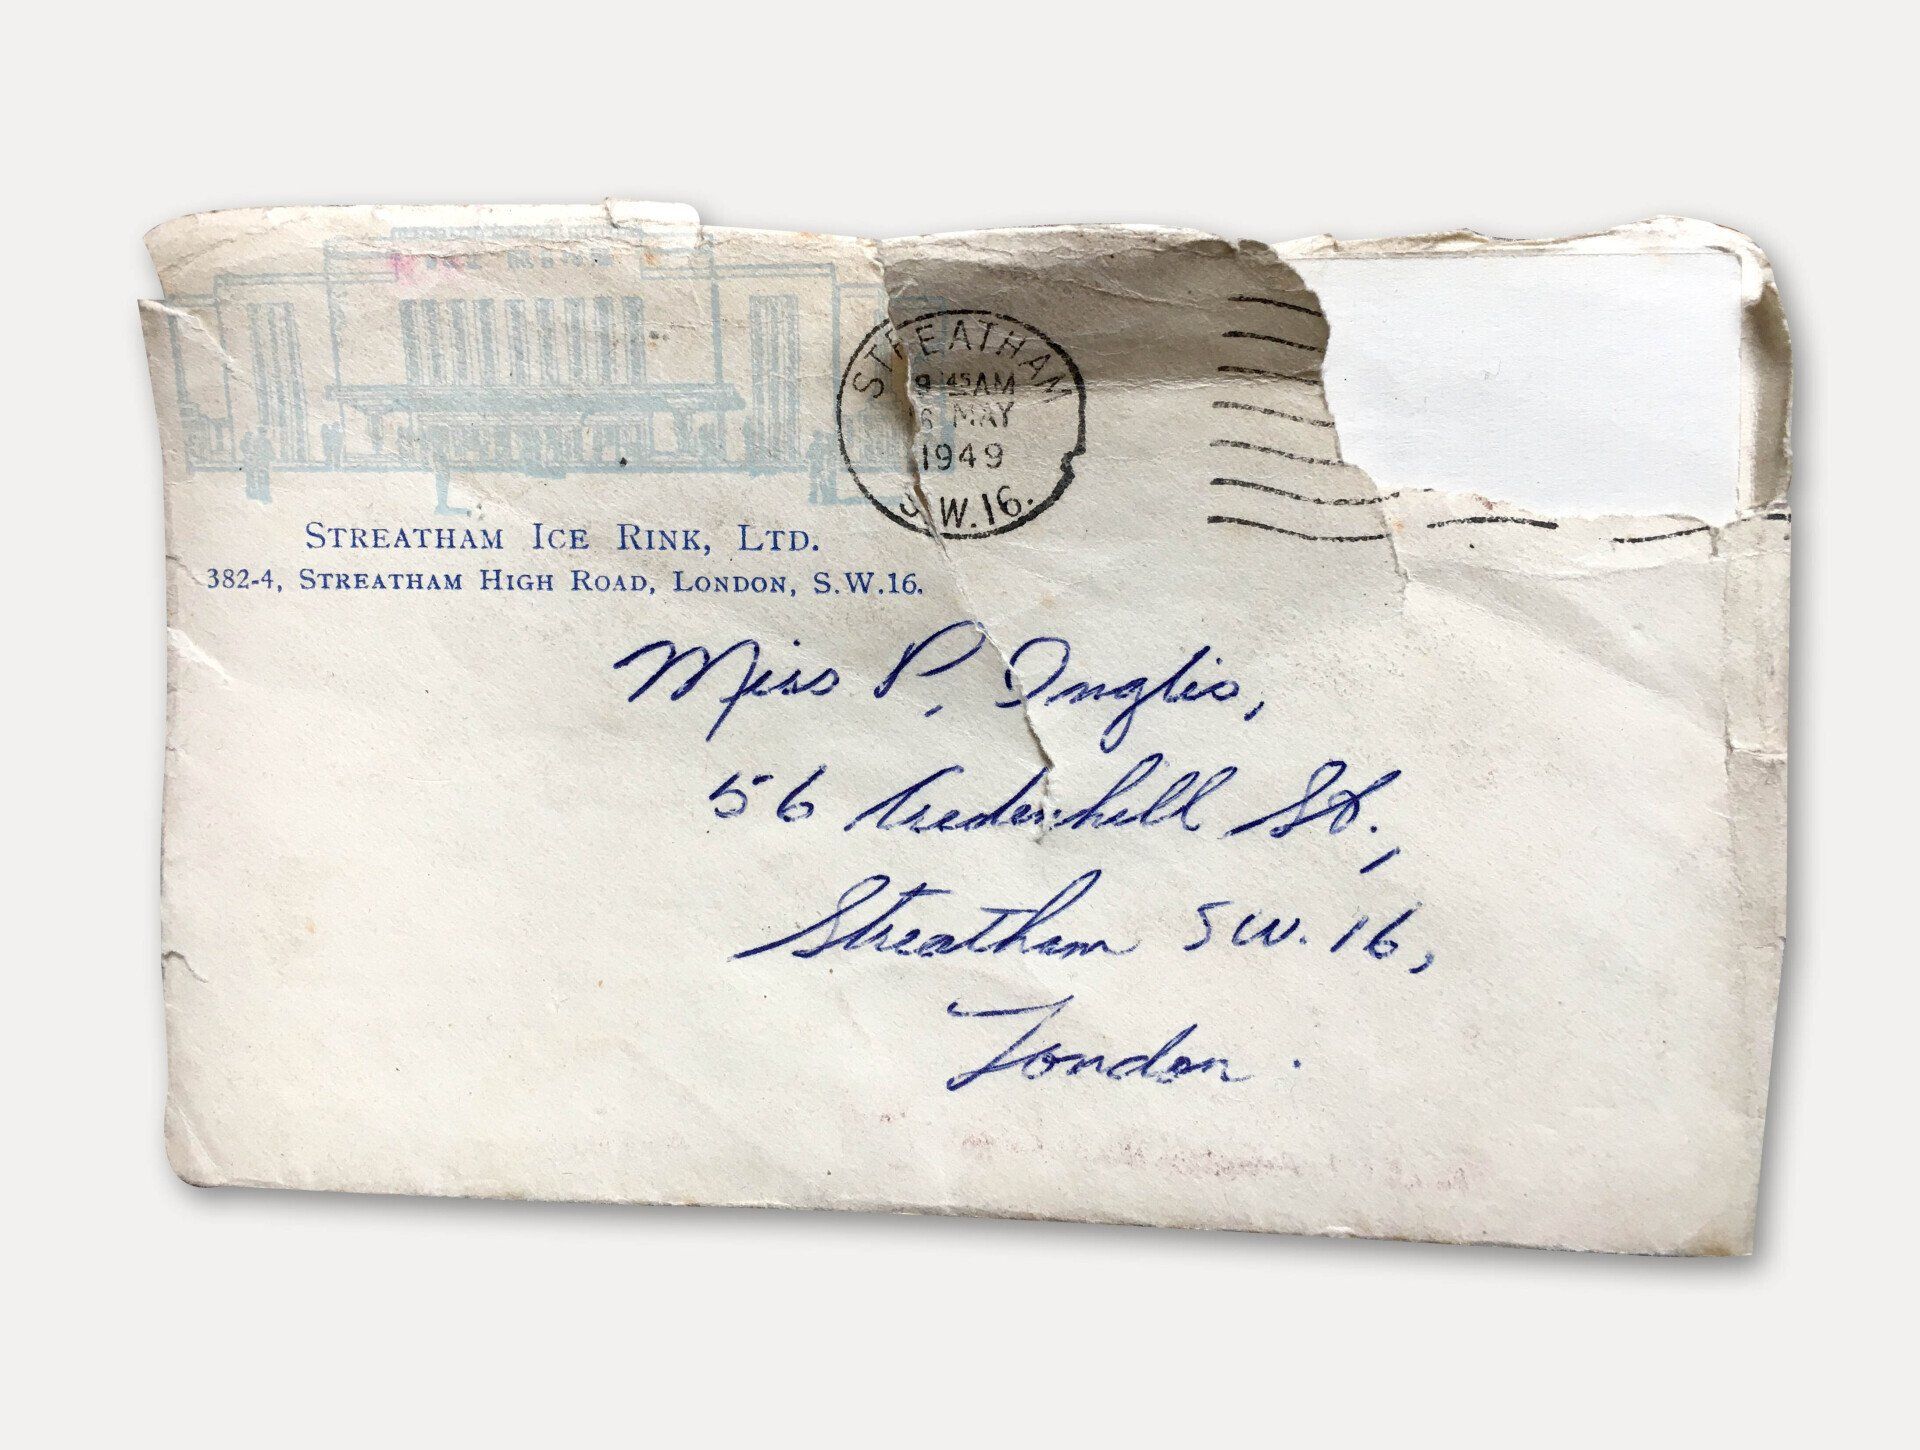 STREATHAM
9 45 AM
6 MAY
1949
S.W.16.
STREATHAM ICE RINK, LTD.
382-4, STREATHAM HIGH ROAD, LONDON, S.W.16.
Miss P. Inglis,
56 Credenhill St.,
Streatham S W. 16,
London.